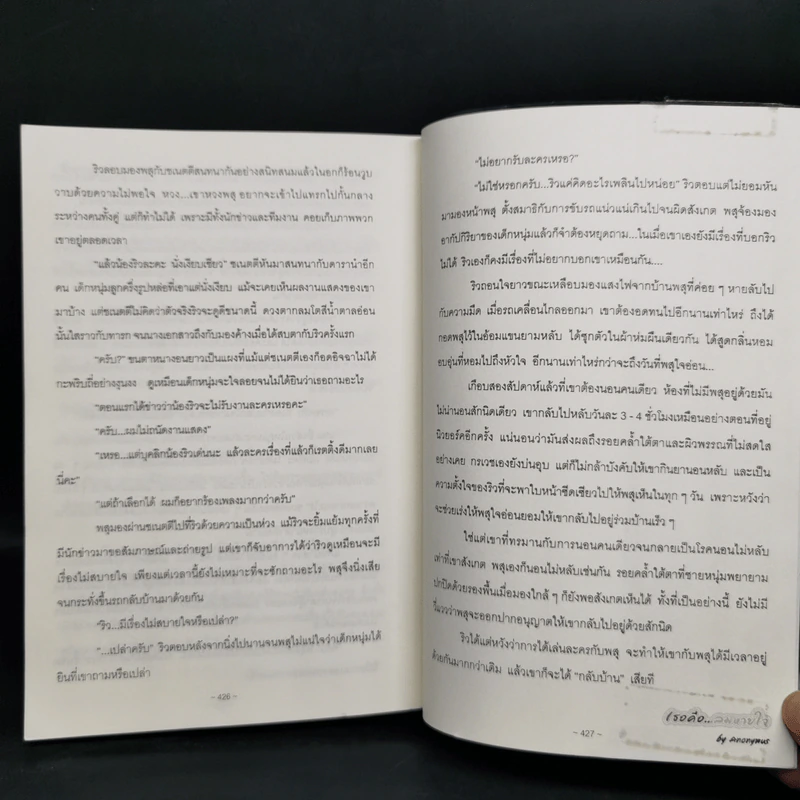 ริวตอบมองพสุกับชเนตตีสนทนากันอย่างสนิทสนมแล้วในอกก็ร้อนวูบ
วาบด้วยความไม่พอใจ หวง...เขาหวงพสุ อยากจะเข้าไปแทรกไปกั้นกลาง
ระหว่างคนทั้งคู่ แต่ก็ทำไม่ได้ เพราะมีทั้งนักข่าวและทีมงาน คอยเก็บภาพพวก
เขาอยู่ตลอดเวลา
“แล้วน้องริวละคะ นั่งเงียบเชียว” ชเนตตีหันมาสนทนากับดารานำอีก
คน เด็กหนุ่มลูกครึ่งรูปหล่อที่เอาแต่นั่งเงียบ แม้จะเคยเห็นผลงานแสดงของเขา
มาบ้าง แต่ชเนตตีไม่คิดว่าตัวจริงริวจะดูดีขนาดนี้ ดวงตากลมโตสีน้ำตาลอ่อน
นั้นใสราวกับทารก จนนางเอกสาวถึงกับมองค้างเมื่อได้สบตากับริวครั้งแรก
“ครับ?” ขนตาหนางอนยาวเป็นแผงที่แม้แต่ชเนตตีเองก็อดอิจฉาไม่ได้
กะพริบถี่อย่างงุนงง ดูเหมือนเด็กหนุ่มจะใจลอยจนไม่ได้ยินว่าเธอถามอะไร
“ตอนแรกได้ข่าวว่าน้องริวจะไม่รับงานละครเหรอคะ”
“ครับ...ผมไม่ถนัดงานแสดง”
“เหรอ...แต่บุคลิกน้องริวเด่นนะ แล้วละครเรื่องที่แล้วก็เรตติ้งดีมากเลย
นี่คะ”
“แต่ถ้าเลือกได้ ผมก็อยากร้องเพลงมากกว่าครับ”
พสุมองผ่านชเนตตีไปที่ริวด้วยความเป็นห่วง แม้ริวจะยิ้มแย้มทุกครั้งที่
มีนักข่าวมาขอสัมภาษณ์และถ่ายรูป แต่เขาก็จับอาการได้ว่าริวดูเหมือนจะมี
เรื่องไม่สบายใจ เพียงแต่เวลานี้ยังไม่เหมาะที่จะซักถามอะไร พสุจึงนิ่งเสีย
จนกระทั่งขึ้นรถกลับบ้านมาด้วยกัน
“ริว...มีเรื่องไม่สบายใจหรือเปล่า?”
“...เปล่าครับ” ริวตอบหลังจากนิ่งไปนานจนพสุไม่แน่ใจว่าเด็กหนุ่มได้
ยินที่เขาถามหรือเปล่า
~ 426 ~
“ไม่อยากรับละครเหรอ?”
“ไม่ใช่หรอกครับ...ริวแค่คิดอะไรเพลินไปหน่อย” ริวตอบแต่ไม่ยอมหัน
มามองหน้าพสุ ตั้งสมาธิกับการขับรถแน่วแน่เกินไปจนผิดสังเกต พสุจ้องมอง
อากัปกิริยาของเด็กหนุ่มแล้วก็จำต้องหยุดถาม...ในเมื่อเขาเองยังมีเรื่องที่บอกริว
ไม่ได้ ริวเองก็คงมีเรื่องที่ไม่อยากบอกเขาเหมือนกัน....
ริวถอนใจยาวขณะเหลือบมองแสงไฟจากบ้านพสุที่ค่อย ๆ หายลับไป
กับความมืด เมื่อรถเคลื่อนไกลออกมา เขาต้องอดทนไปอีกนานเท่าไหร่ ถึงได้
กอดพสุไว้ในอ้อมแขนยามหลับ ได้ซุกตัวในผ้าห่มผืนเดียวกัน ได้สูดกลิ่นหอม
อบอุ่นที่หอมไปถึงหัวใจ อีกนานเท่าไหร่กว่าจะถึงวันที่พสุใจอ่อน...
เกือบสองสัปดาห์แล้วที่เขาต้องนอนคนเดียว ห้องที่ไม่มีพสุอยู่ด้วยมัน
ไม่น่านอนสักนิดเดียว เขากลับไปหลับวันละ 3 - 4 ชั่วโมงเหมือนอย่างตอนที่อยู่
นิวยอร์คอีกครั้ง แน่นอนว่ามันส่งผลถึงรอยคล้ำใต้ตาและผิวพรรณที่ไม่สดใส
อย่างเคย กรเวชเองยังบ่นอุบ แต่ก็ไม่กล้าบังคับให้เขากินยานอนหลับ และเป็น
ความตั้งใจของริวที่จะพาใบหน้าซีดเซียวไปให้พสุเห็นในทุก ๆ วัน เพราะหวังว่า
จะช่วยเร่งให้พสุใจอ่อนยอมให้เขากลับไปอยู่ร่วมบ้านเร็ว ๆ
ใช่แต่เขาที่ทรมานกับการนอนคนเดียวจนกลายเป็นโรคนอนไม่หลับ
เท่าที่เขาสังเกต พสุเองก็นอนไม่หลับเช่นกัน รอยคล้ำใต้ตาที่ชายหนุ่มพยายาม
ปกปิดด้วยรองพื้นเมื่อมองใกล้ ๆ ก็ยังพอสังเกตเห็นได้ ทั้งที่เป็นอย่างนี้ ยังไม่มี
วี่แววว่าพสุจะออกปากอนุญาตให้เขากลับไปอยู่ด้วยสักนิด
ริวได้แต่หวังว่าการได้เล่นละครกับพสุ จะทำให้เขากับพสุได้มีเวลาอยู่
ด้วยกันมากกว่าเดิม แล้วเขาก็จะได้ “กลับบ้าน” เสียที
เธอคือ...ลมหายใจ
by Anonymus
~ 427 ~